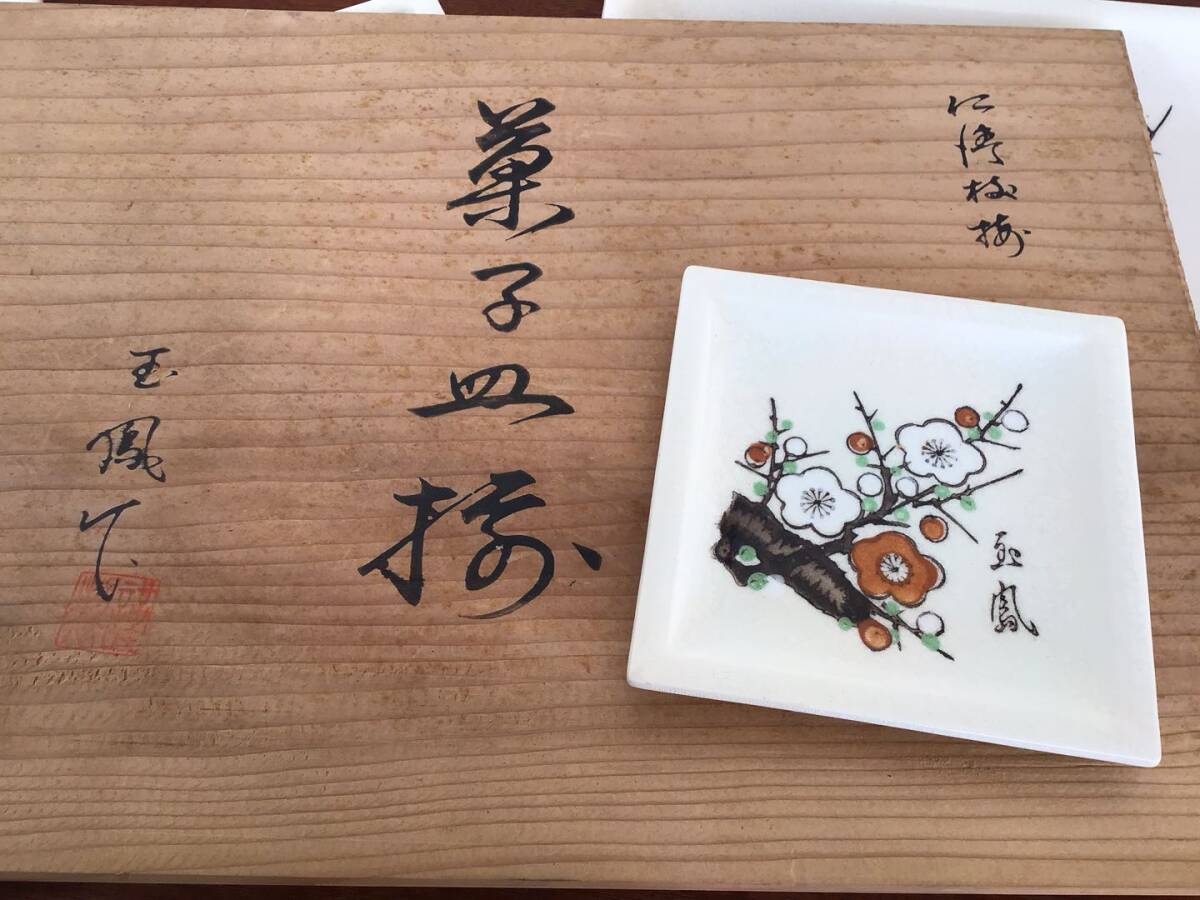 仁清枝梅
菓子皿揃
玉鳳作
玉鳳